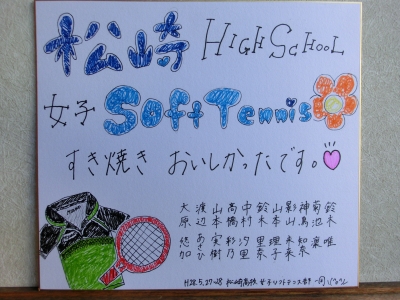 松崎 HIGH SCHOOL
女子 Soft Tennis
すき焼き おいしかったです。
鈴木 唯
菊池 凜
神鳥 知奈
影山 未来
山本 理子
鈴木 里奈
中村 汐里
高橋 彩乃
山本 実樹
渡辺 あさひ
大原 悠加
H28.5.27~28 松崎高校 女子ソフトテニス部 一同